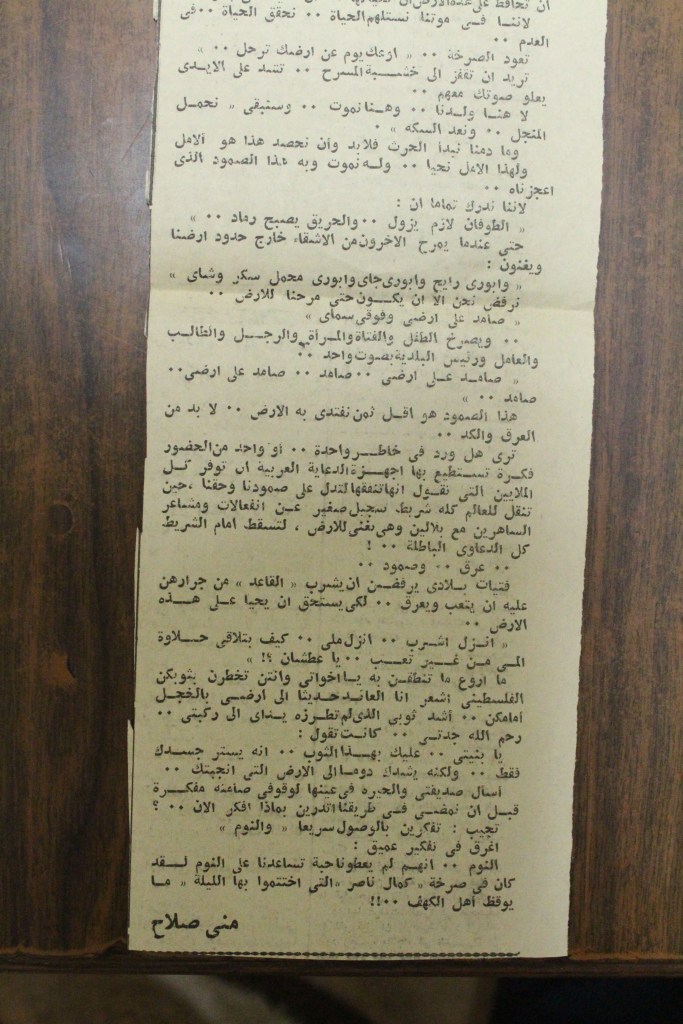 أن نحافظ على هذه الأرض
لاننا فى موتنا نستلهم الحياة ٠٠ نحقق الحياة ٠٠ فى
العدم ٠٠
تعود الصرخة ٠٠ « ازعك يوم عن ارضك ترحل ٠٠ »
تريد ان تقفز الى خشبة المسرح ٠٠ تشد على الايدى
يعلو صوتك معهم ٠٠
لا هنا ولدنا ٠٠ وهنا نموت ٠٠ وسنبقى « نحمل
المنجل ٠٠ ونعد السكه » ٠
وما دمنا نبدأ الحرث فلا بد وأن نحصد هذا هو الامل
ولهذا الامل نحيا ٠٠ وله نموت وبه هذا الصمود الذى
اعجزناه ٠٠
لاننا ندرك تماما ان :
« الطوفان لازم يزول ٠٠ والحريق يصبح رماد ٠٠ »
حتى عندما يمرح الاخرون من الاشقاء خارج حدود ارضنا
ويغنون :
« وابورى رايح وابورى جاى وابورى محمل سكر وشاى »
نرفض نحن الا ان يكون حتى مرحنا للارض ٠٠
« صامد على ارضى وفوقى سماى »
٠٠ ويصرخ الطفل والفتاة والمرأة والرجل والطالب
والعامل ورئيس البلدية بصوت واحد ٠٠
« صامد على ارضى ٠٠ صامد ٠٠ صامد على ارضى ٠٠
صامد ٠٠ »
هذا الصمود هو اقل ثمن نفتدى به الارض ٠٠ لا بد من
العرق والكد ٠٠
ترى هل ورد فى خاطر واحدة ٠٠ أو واحد من الحضور
فكرة تستطيع بها اجهزة الدعاية العربية ان توفر كل
الملايين التى تقول انها تنفقها لتدل على صمودنا وحقنا ، حين
تنقل للعالم كله شريط سجيل صغير عن انفعالات ومشاعر
الساهرين مع بلالين وهى تغنى للارض ، لتسقط امام الشريط
كل الدعاوى الباطلة ٠٠ !
٠٠ عرق ٠٠ وصمود ٠٠
فتيات بلادى يرفضن ان يشرب « القاعد » من جرارهن
عليه ان يتعب ويعرق ٠٠ لكى يستحق ان يحيا على هذه
الارض ٠٠
« انزل اشرب ٠٠ انزل ملى ٠٠ كيف بتلاقى حلاوة
المى من غير تعب ٠٠ يا عطشان ؟! »
ما اروع ما تنطقن به يا اخواتى وانتن تخطرن بثوبكن
الفلسطينى اشعر انا العائد حديثا الى ارضى بالخجل
أمامكن ٠٠ أشد ثوبى الذى لم تطرزه يداى الى ركبتى ٠٠
رحم الله جدتى ٠٠ كانت تقول :
يا بنيتى ٠٠ عليك بهذا الثوب ٠٠ انه يستر جسدك
فقط ٠٠ ولكنه يشدك دوما الى الارض التى انجبتك ٠٠
أسال صديقتى والحيره فى عينها لوقوفى صامته مفكرة
قبل ان نمضى فى طريقنا اتدرين بماذا افكر الان ٠٠ ؟
تجيب : تفكرين بالوصول سريعا « والنوم »
اغرق فى تفكير عميق :
النوم ٠٠ انهم لم يعطونا حبة تساعدنا على النوم لقد
كان فى صرخة « كمال ناصر » التى اختتموا بها الليلة « ما
يوقظ أهل الكهف ٠٠!!
منى صلاح